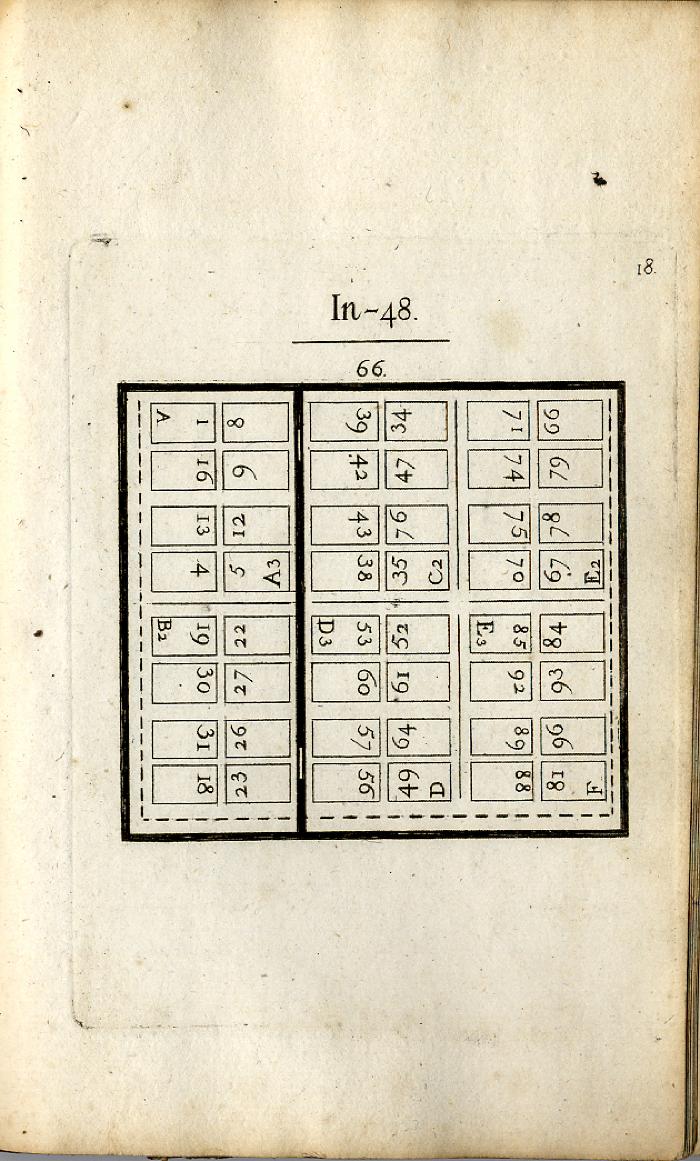 18.
In-48.
66.
A 1 8 39 34 71 66
16 9 42 47 74 79
13 12 43 76 75 78
4 5 A3 38 35 C2 70 67. E2
B2 19 22 D3 53 52 E3 85 84
30 27 60 61 92 93
31 26 57 64 89 96
18 23 56 49 D 88 81 F